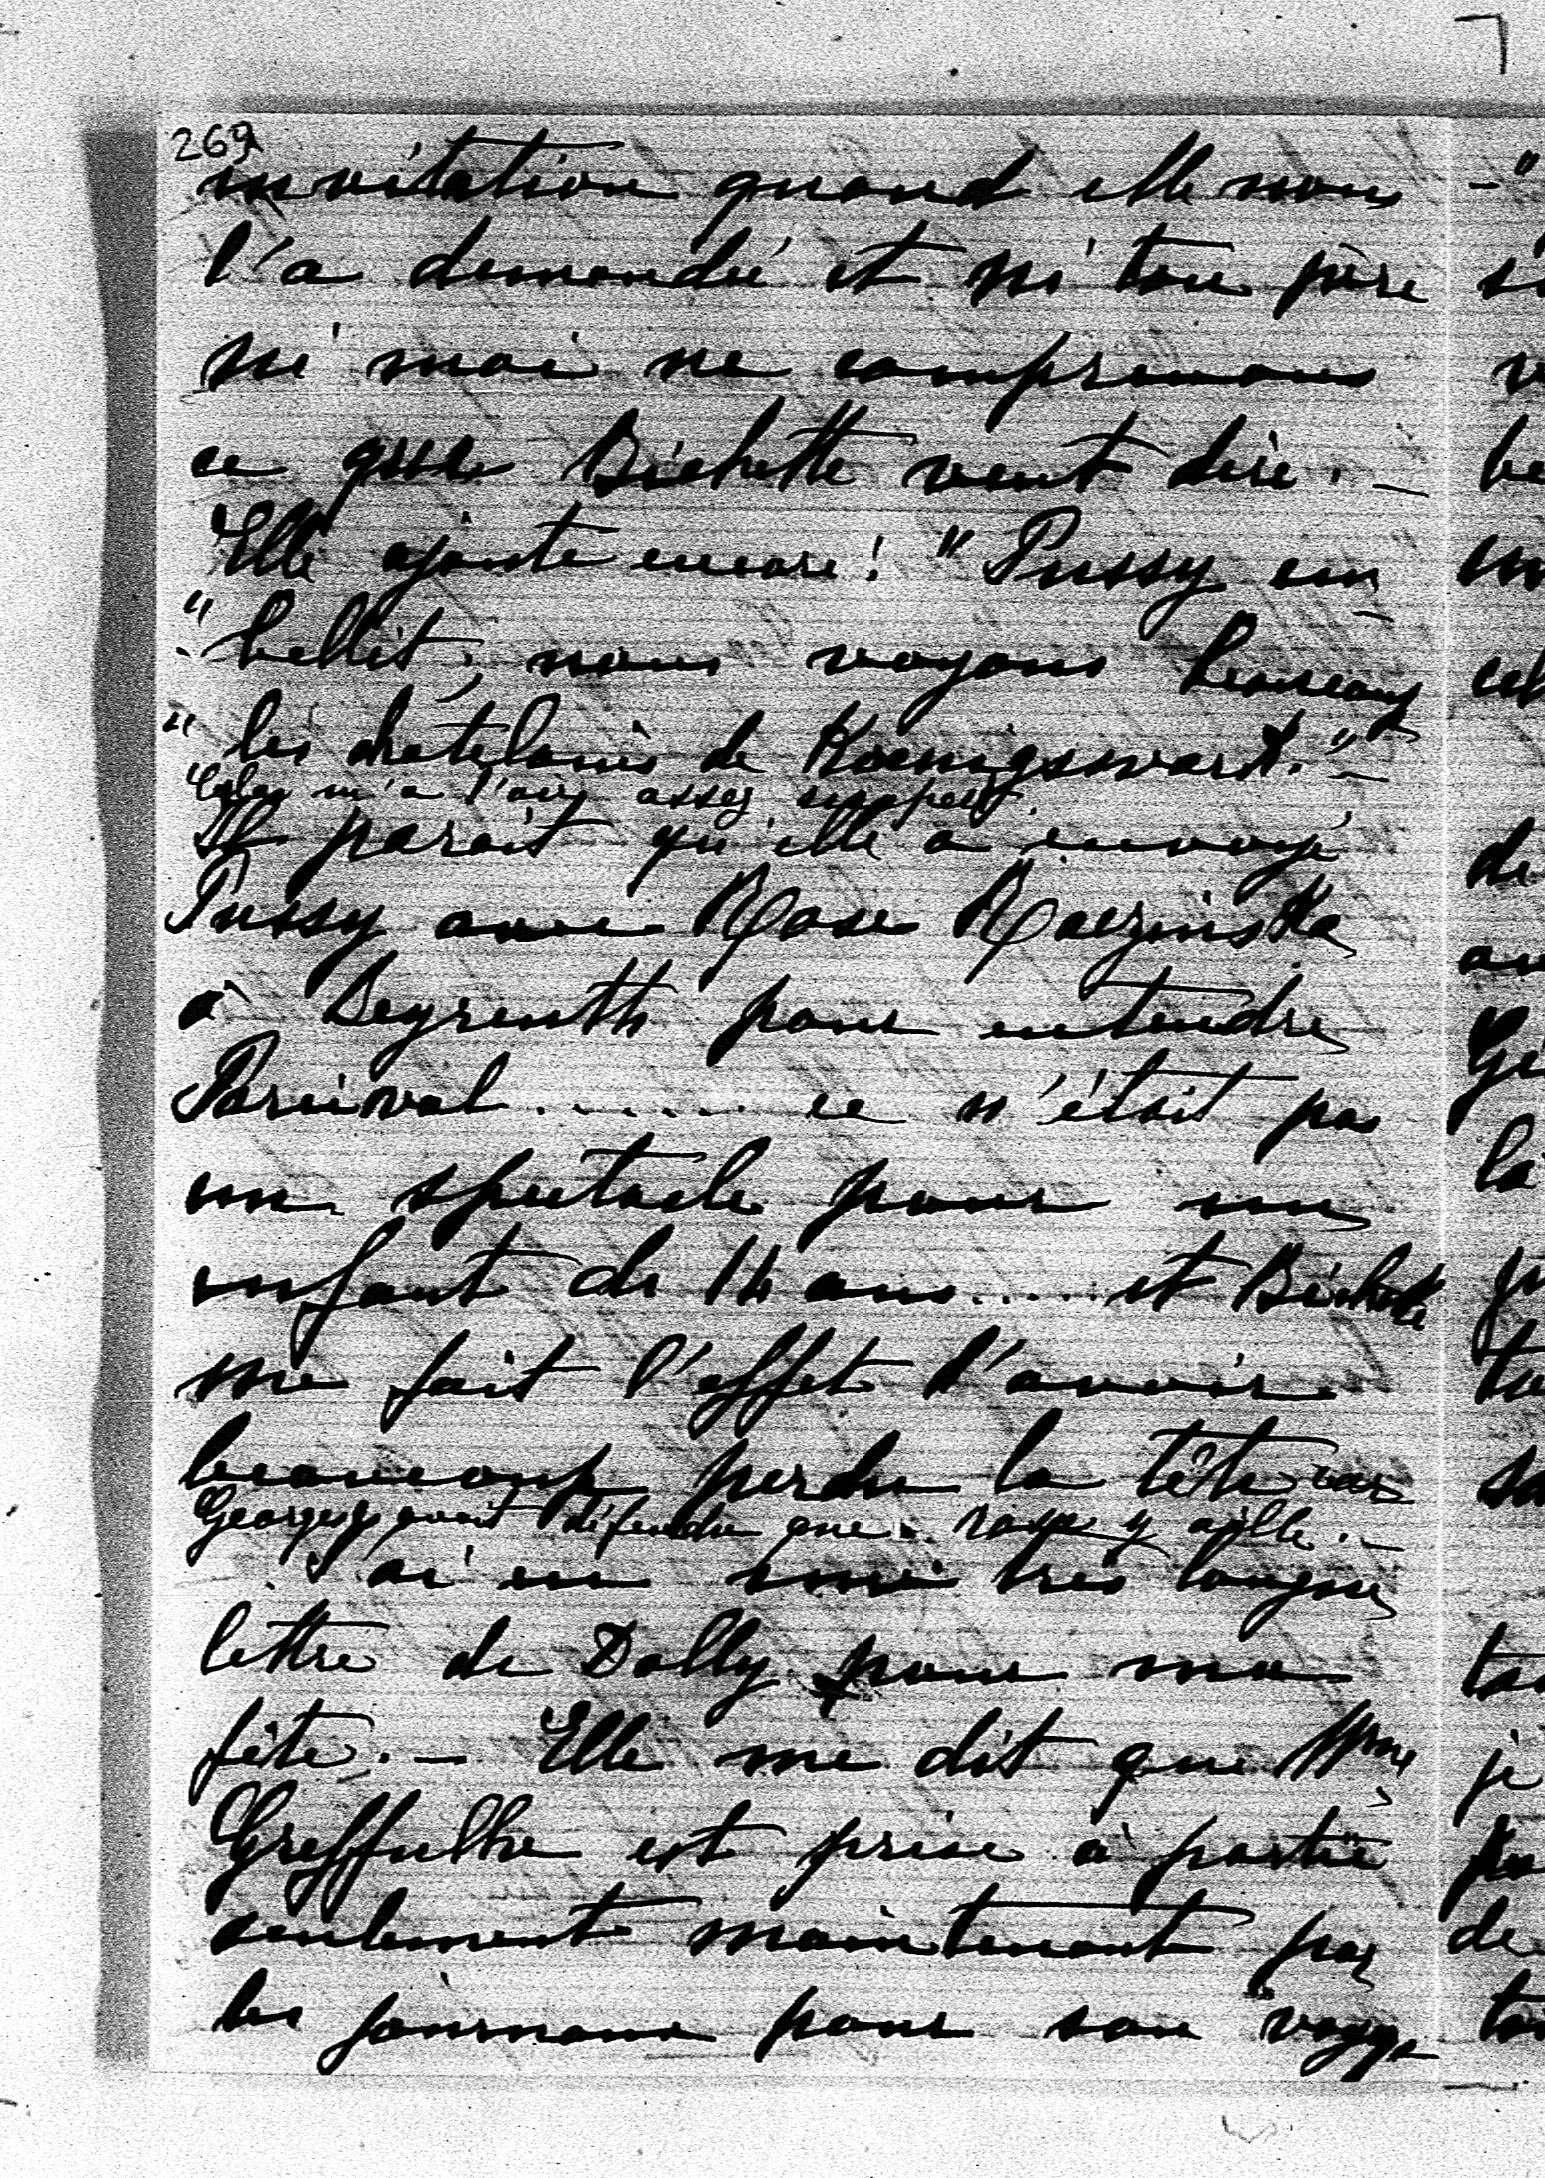 269
invitation quand elle nous
l'a demandé et ni ton père
ni moi ne comprenons
ce que Bichette veut dire. _
Elle ajoute encore : "Pussy em
"bellit, nous voyons beaucoup
"les châtelains de Koenigswart." _
m'a l'air assez suspect.
Il paraît qu'elle a envoyé
Pussy avec Rose
à Beyreuth pour entendre
Parcival ....... ce n'était pas
un spectacle pour une
enfant de 14 ans ..... et Bichette
me fait l'effet d'avoir
beaucoup perdu la tête car
Georges avait défendu que y aille. _
J'ai eu une très longue
lettre de Dolly pour ma
fête. _ Elle me dit que Mme
Greffulhe est prise à partie
seulement maintenant par
les journaux pour son voyage